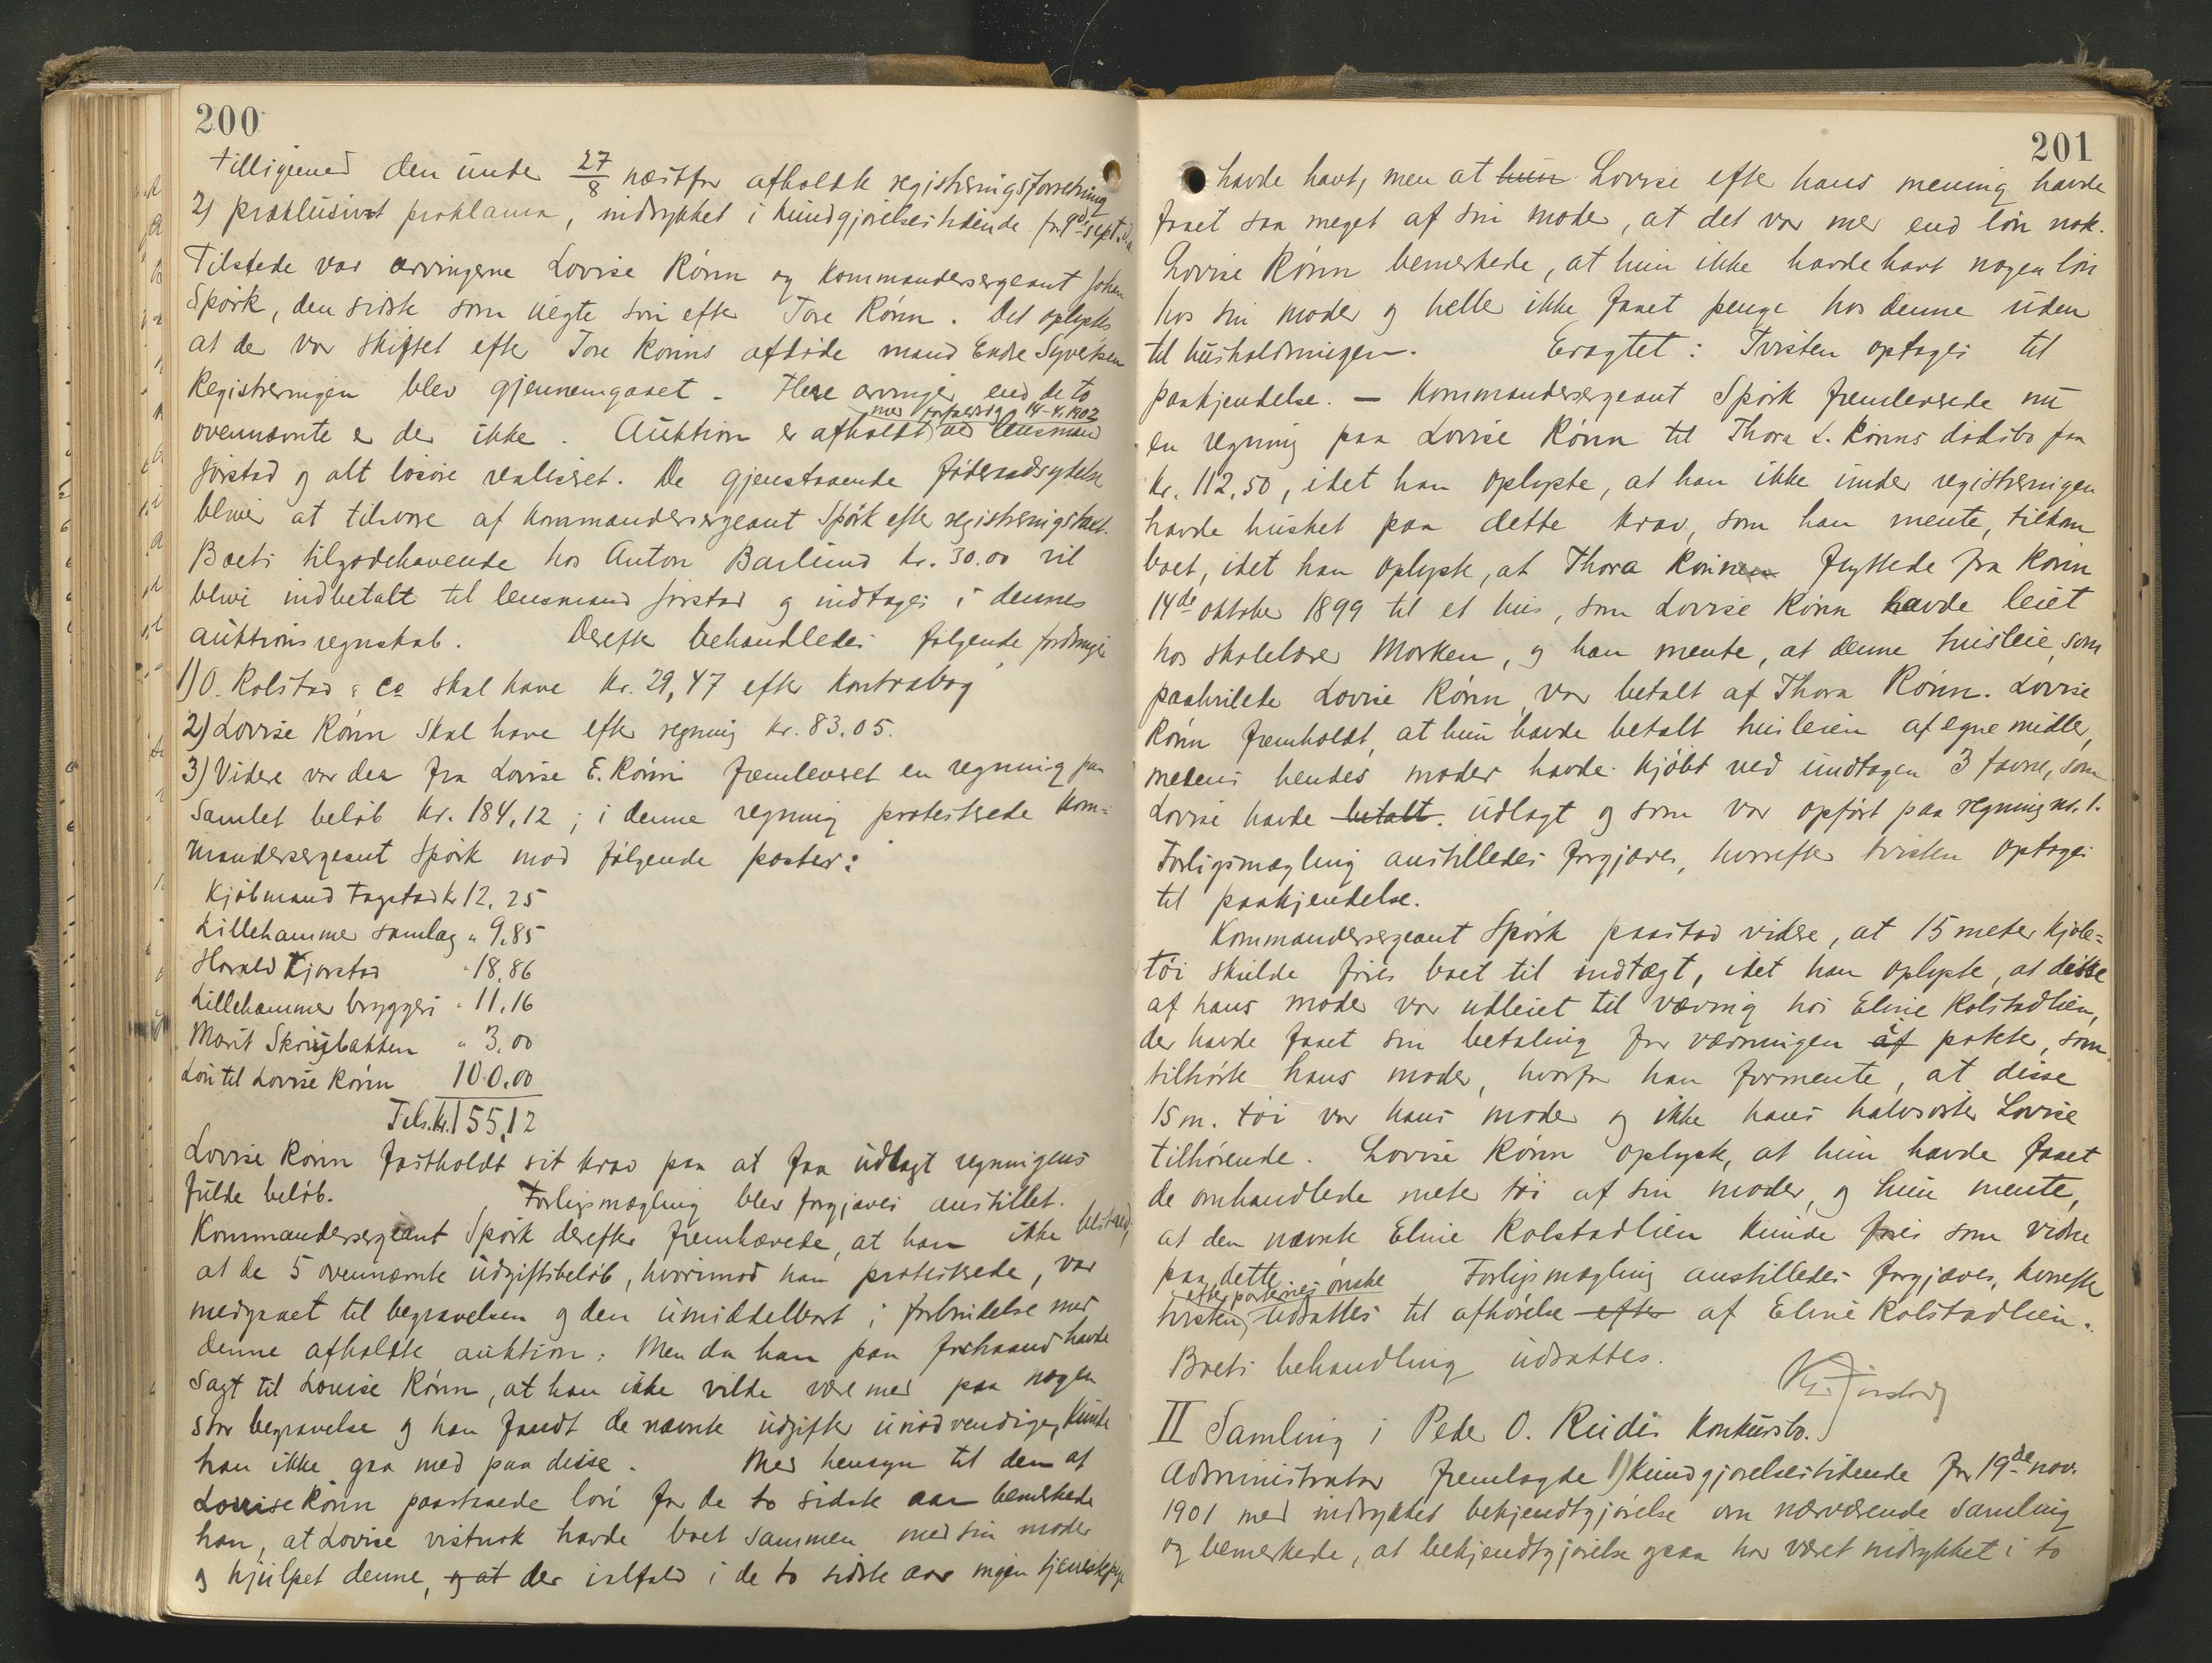 200
tilligemed den under 27/8 næstfor afholdte registreringsforretning
2) præklusivt proklama, indrykket i kundgjørelsestidende for 9de sept.
Tilstede var arvingerne Lovise Rönn og kommandersergeant Johan
Spørk, den sidste som uegte sön efter Tore Rönn. Det oplystes
at der var skiftet efter Tore Rönns afdöde mand Endre Syversen
Registreringen blev gjennemgaaet. Flere arvinger end de to
med forfaldsdag 14-4.1902
ovennævnte er der ikke. Auktion er afholdt ved lensmand
Jörstad og alt lösöre realiseret. De gjenstaaende föderaadsydelse
bliver at tilsvare af kommandersergeant Spørk efter registreringstaxt.
Boets tilgodehavende hos Anton Barlund kr. 30.00 vil
blive indbetalt til lensmand Jörstad og indtages i dennes
auktionsregnskab. Derefter behandledes fölgende fordringer
1) O. Kolstad & Co skal have kr. 29,47 efter kontrabog
2) Lovise Rönn skal have efter regning kr. 83.05.
3) Videre var der fra Lovise E. Rönn fremleveret en regning paa
samlet belöb kr. 184,12; i denne regning protesterede kom-
mandersergeant Spørk mod fölgende poster:
Kjöbmand Fagstad kr 12,25
Lillehammer samlag " 9.85
Harald Kjorstad " 18,86
Lillehammer bryggeri " 11,16
Marit Skriubakken " 3,00
Lön til Lovise Rönn 100,00
Tils. kr. 155,12
Lovise Rönn fastholdt sit krav paa at faa udlagt regningens
fulde belöb. Forligsmægling blev forgjæves anstillet.
Kommandersergeant Spørk derefter fremhævede, at han ikke bestred,
at de 5 ovennævnte udgiftsbelöb, hvorimod han protesterede, var
medgaaet til begravelsen og den umiddelbart i forbindelse med
denne afholdte auktion. Men da han paa forhaand havde
sagt til Louise Rönn, at han ikke vilde være med paa nogen
stor begravelse og han fandt de nævnte udgifter unödvendige, kunde
han ikke gaa med paa disse. Med hensyn til den af
Louise Rönn paastaaede lön for de to sidste aar bemerkede
han, at Lovise vistnok havde boet sammen med sin moder
og hjulpet denne, og at der ialfald i de to sidste aar ingen tjenestepige
201
havde havt, men at hun Lovise efter hans mening havde
faaet saa meget af sin moder, at det var mer end lön nok.
Lovise Rönn bemerkede, at hun ikke havde havt nogen lön
hos sin moder og heller ikke faaet penge hos denne uden
til husholdningen. Eragtet: Tvisten optages til
paakjendelse. — Kommandersergeant Spørk fremleverede nu
en regning paa Lovise Rönn til Thora L. Rönns dödsbo paa
kr. 112,50, idet han oplyste, at han ikke under registreringen
havde husket paa dette krav, som han mente, tilkom
boet, idet han oplyste, at Thora Rönnen flyttede fra Rönn
14de oktober 1899 til et hus, som Lovise Rönn havde leiet
hos skolelærer Morken, og han mente, at denne husleie, som
paahvilede Lovise Rönn, var betalt af Thora Rönn. Lovise
Rönn fremholdt, at hun havde betalt husleien af egne midler,
medens hendes moder havde kjöbt ved undtagen 3 favne, som
Lovise havde betalt. udlagt og som var opfört paa regning nr. 1.
Forligsmægling anstilledes forgjæves, hvorefter tvisten optages
til paakjendelse.
Kommandersergeant Spørk paastod videre, at 15 meter kjole-
töi skulde föres boet til indtægt, idet han oplyste, at disse
af hans moder var udleiet til vævning hos Eline Kolstadlien,
der havde faaet sin betaling for vævningen af poteter, som
tilhörte hans moder, hvorfor han formente, at disse
15 m. töi var hans moder og ikke hans halvsöster Lovise
tilhörende. Lovise Rönn oplyste, at hun havde faaet
de omhandlede meter töi af sin moder, og hun mente,
at den nævnte Eline Kolstadlien kunde föres som vidne
paa dette. Forligsmægling anstilledes forgjæves, hvorefter
efter parternes önske
tvisten udsattes til afhörelse efter af Eline Kolstadlien.
Boets behandling udsattes.
II Samling i Peder O. Ruds konkursbo.
Administrator fremlagde 1) Kundgjørelsestidende for 19de nov.
1901 med indrykket bekjendtgjörelse om nærværende samling
og bemerkede, at bekjendtgjörelse ogsaa har været indrykket i to